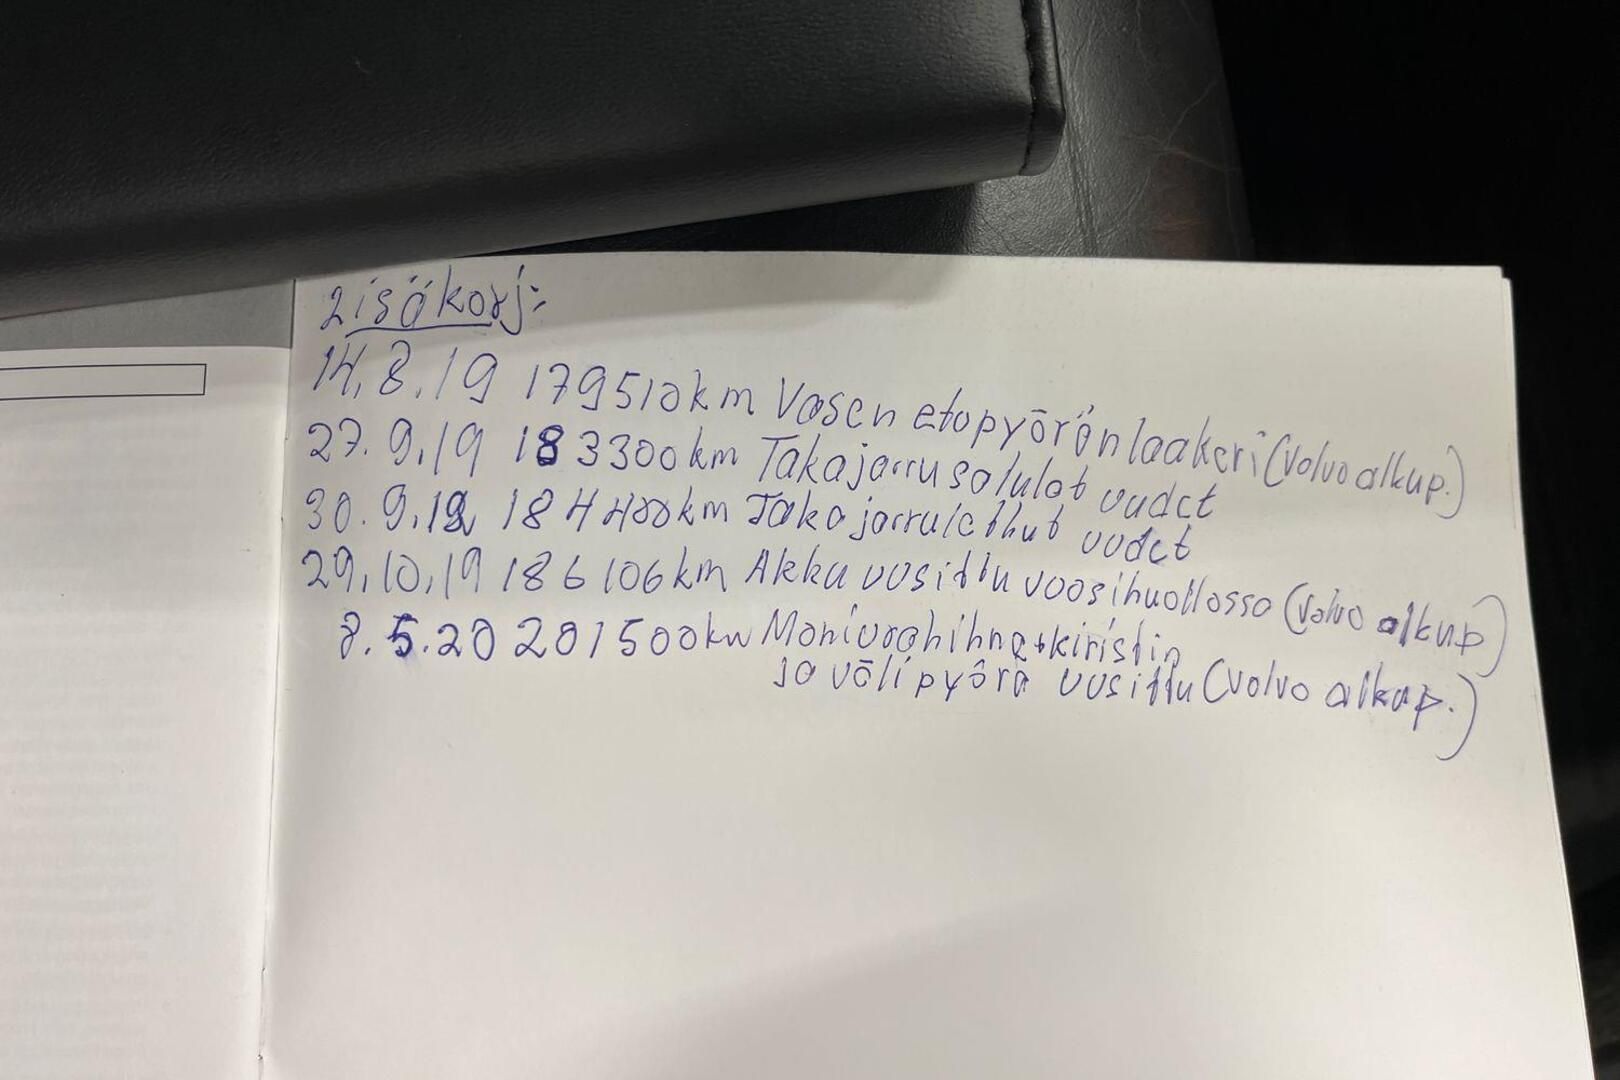 Lisäkorj:
14.8.19 179510km Vasen etupyörän laakeri (Volvo alkup.)
27.9.19 183300km Takajarrusatulat uudet
30.9.19 184400km Takajarruletkut uudet
29.10.19 186106km Akku uusittu vuosihuollossa (Volvo alkup)
8.5.20 201500km Moniurahihna+kiristin
ja välipyörä uusittu (Volvo alkup.)